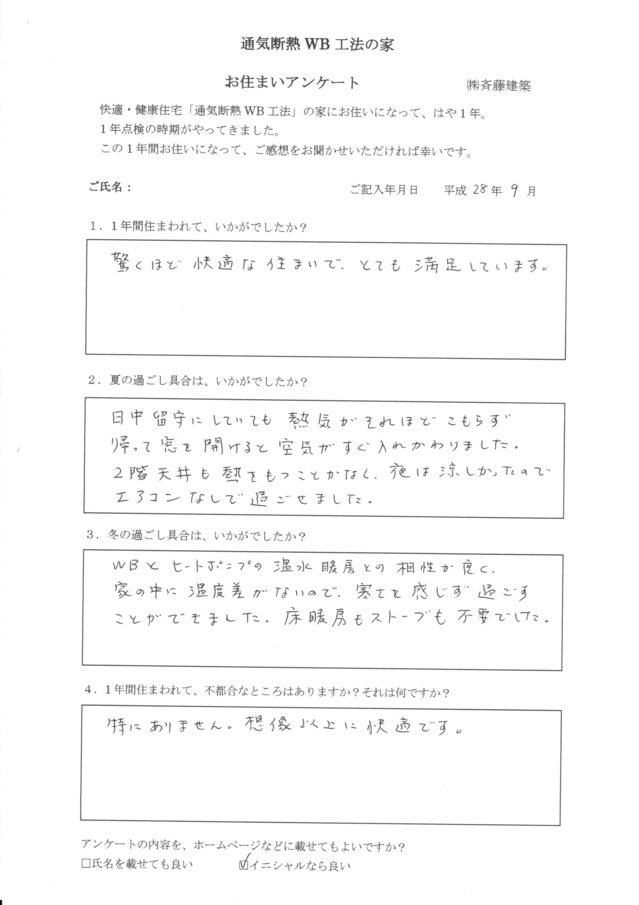 通気断熱 WB 工法の家
お住まいアンケート
㈱斉藤建築
快適・健康住宅「通気断熱 WB 工法」の家にお住いになって、はや1年。
1年点検の時期がやってきました。
この1年間お住いになって、ご感想をお聞かせいただければ幸いです。
ご氏名： ご記入年月日 平成 28 年 9 月
1．1年間住まわれて、いかがでしたか？
驚くほど 快適な住まいで、とても 満足しています。
2．夏の過ごし具合は、いかがでしたか？
日中留守にしていても 熱気がそれほど こもらず
帰って窓を開けると空気がすぐ入れかわりました。
2階天井も熱をもつことがなく、夜は涼しかったので
エアコンなしで過ごせました。
3．冬の過ごし具合は、いかがでしたか？
WBとヒートポンプの温水暖房との相性が良く、
家の中に温度差がないので、寒さを感じず過ごす
ことができました。床暖房もストーブも不要でした。
4．1年間住まわれて、不都合なところはありますか？それは何ですか？
特にありません。想像以上に快適です。
アンケートの内容を、ホームページなどに載せてもよいですか？
□氏名を載せても良い ☑イニシャルなら良い